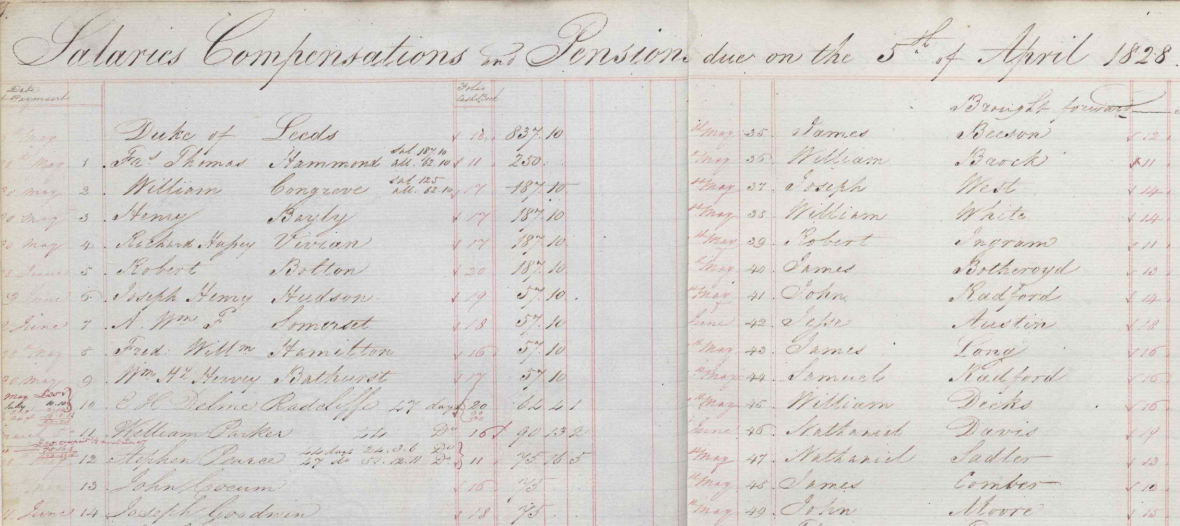 Salaries Compensations and Pensions due on the 5th of April 1828.
Date Payment
Folio Cash Book
Duke of Leeds 12 837.10
1 Thomas Hammond Sal 187.10 all. 62.10 11 250.
2 William Congreve Sal 125 all. 62.10 17 187.10
3 Henry Bayly 17 187.10
4 Richard Hussey Vivian 17 187.10
5 Robert Bolton 20 187.10
6 Joseph Henry Hudson 19 57.10.
7 A. Wm F. Somerset 18 57.10
8 Fred. Willm Hamilton 16 57.10
9 Wm Hy Hervey Bathurst 17 57.10
10 C H Delme Radcliffe 47 days 20
11 William Parker 44 Do 16 90.13.2
12 Stephen Pearce 11 75.16.5
13 John Cocum 16 75
June 14 Joseph Goodwin 18 75.
Brought forward
May 35 James Beeson 12
May 36 William Brock 11
May 37 Joseph West 14
May 38 William White 14
May 39 Robert Ingram 11
May 40 James Botheroyd 13
May 41 John Radford 14
June 42 Jesse Austin 18
May 43 James Long 16
May 44 Samuel Radford 16
May 45 William Decks 16
June 46 Nathaniel Davis 19
May 47 Nathaniel Sadler 13
May 48 James Comber 10
May 49 John Moore 15